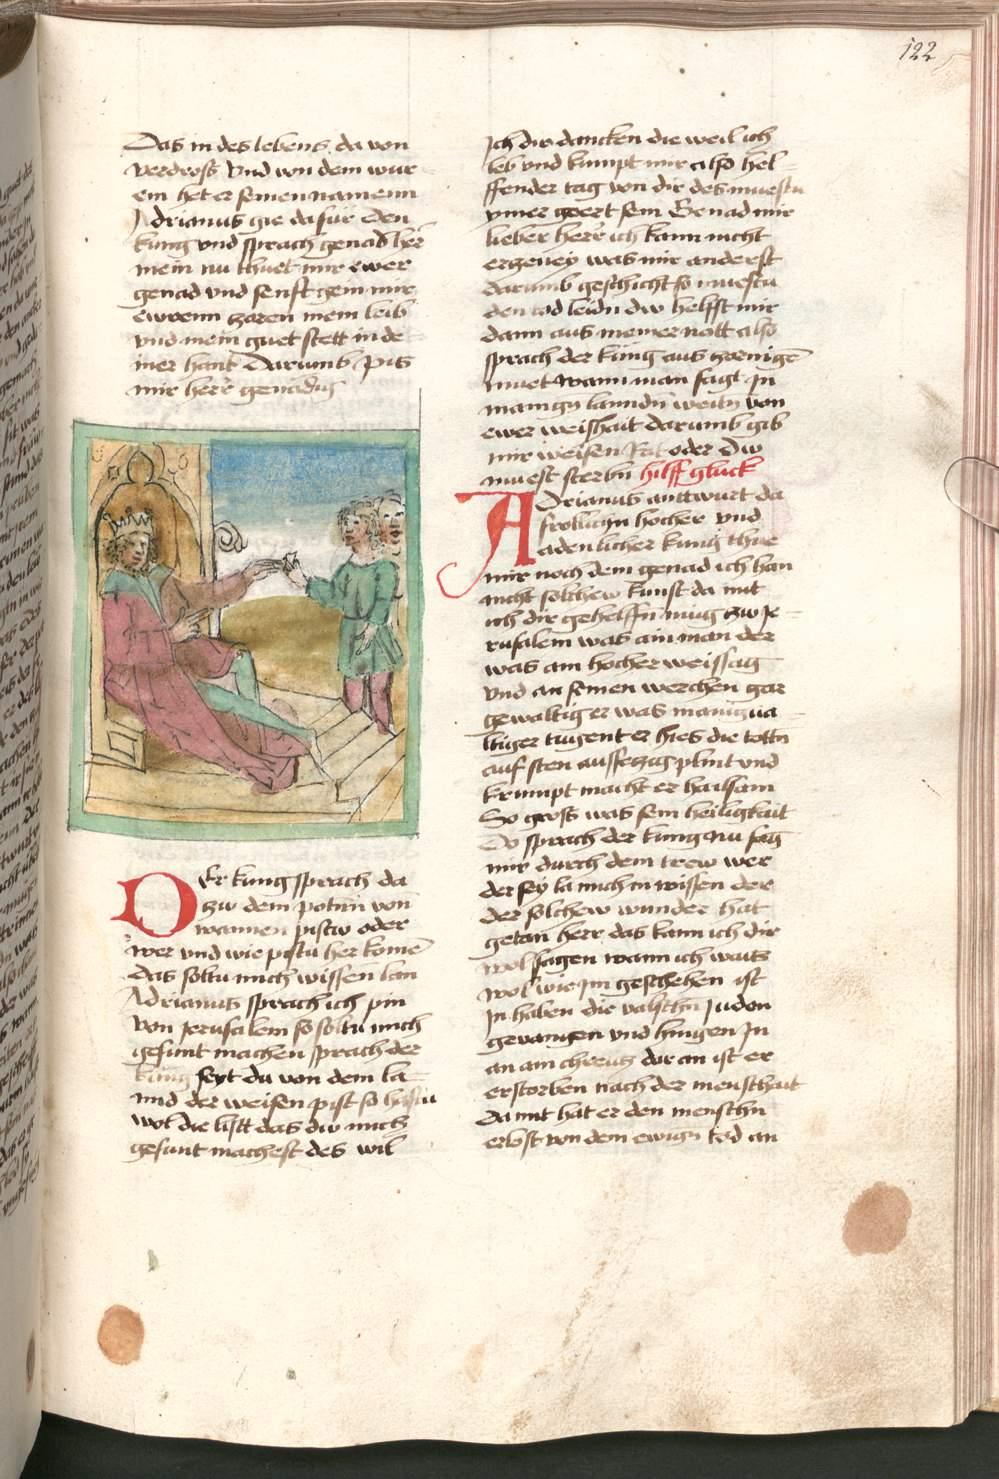 122
Das in des lebens da von
verdross Und von dem wur
em het er seinen namenn
Adrianus gie dafur den
kung vnd sprach genad her
mein nu thuet mir ewer
genad vnd senft gein mir
ewrenn zoren mein leib
vnd mein guet stett in de
iner hant Darumb pis
mir herr genadig
Er kung sprach da
zw dem potnn von
wannen pistw oder
wer vnd wie pistu her komē
das soltu mich wissen lan
Adrianus sprach ich pin
von Jerusalem so soltu mich
gesunt machen sprach der
kung seyt du von dem la
nnd der weisen pist so hastu
wol die listt das dw mich
gesunt machest des wil
Ich dir dancken die weil ich
leb vnd kumpt mir also hel-
ffender tag von dir des muestu
ymer geert sein Genad mir
lieber herr ich kann nicht
erczeney was mir anderst
darumb geschicht so muestu
den tod leidn dw helfft mir
dann aus meiner nott also
sprach der kung aus zornigē
muet wann man sagt Jn
manign lanndn weitn von
ewer weishait darumb gib
mir weisen Rat oder dw
muest sterbn hilff gluck
Adrianus anttwurt da
frolichn hocher vnd
adenlicher kung thue
mir noch dem genad ich han
nicht solchew kunst da mit
ich dir gehelffn mug zw Je-
rusalem was ain man der
was ain hocher weissag
vnd an seinen werchen gar
gewaltig er was manigua-
ltiger tugent er hies die tottn
auf sten aussetzug plint vnd
krumpt macht er hailsam
So gros was sein heiligkait
Do sprach der kung nu sag
mir durch dein trew wer
der sey la mich in wissen der
der solchew wunder hat
getan herr das kann ich dir
wol sagen wann ich wais
wol wie Jm geschehen ist
Jn haben die valschn Juden
gevangen vnd hingen Jn
an ain chreutz dar an ist er
erstorben nach der menschait
da mit hat er den menschn
erlost von dem ewign tod an